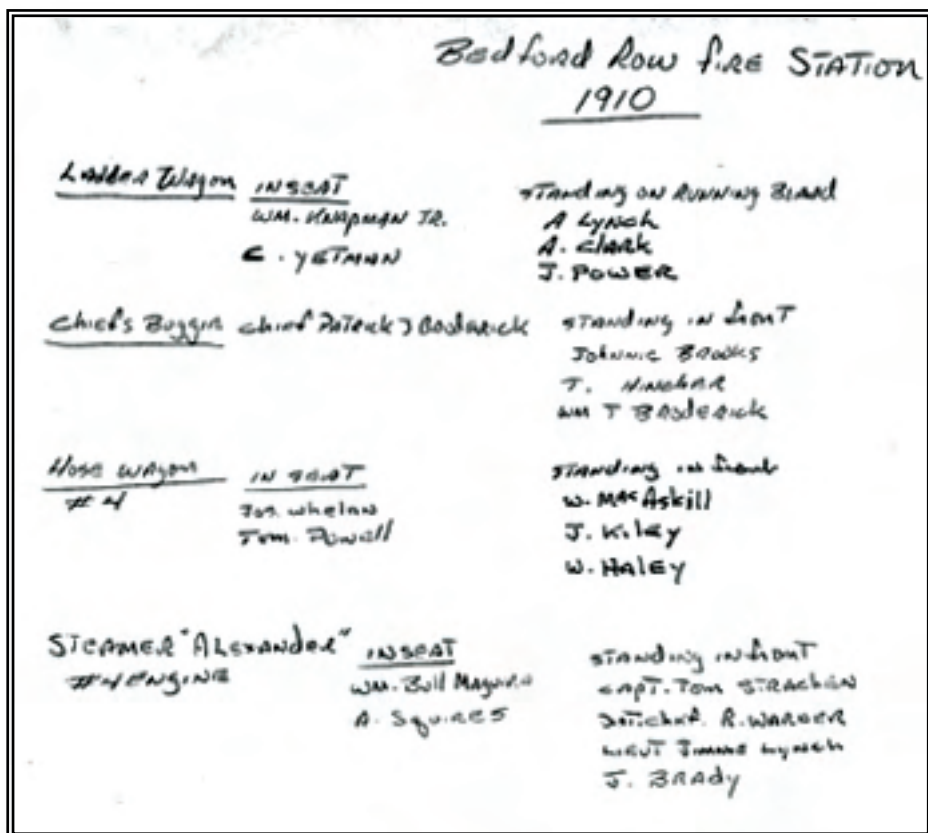 Bedford Row fire Station
1910
Ladder Wagon IN SEAT
WM. KNAPMAN JR.
C. YETMAN
STANDING ON RUNNING BOARD
A Lynch
A. Clark
J. POWER
Chief's Chief Patrick J Broderick
STANDING IN front
Johnnie Brooks
T.
WM T BRODERICK
Hose WAGON
#4
IN SEAT
Jos. Whelan
Tom. Powell
STANDING IN front
W. MacAskill
J. Kiley
W. HALEY
STEAMER "ALEXANDER"
#4 ENGINE
IN SEAT
WM. Bull Maguire
A. SquiRES
STANDING IN front
CAPT. Tom STRACHAN
R. WARNER
LIEUT Jimmie Lynch
J. BRADY